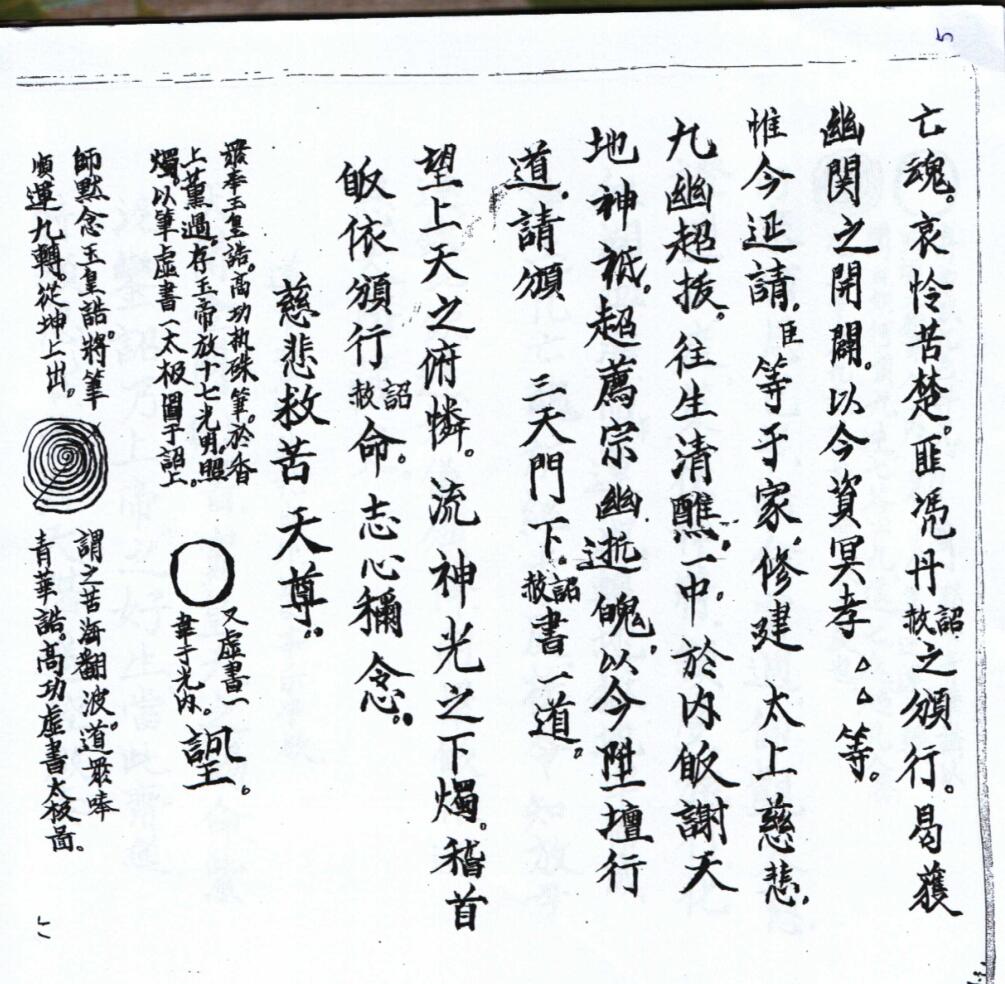 5
亡魂。哀怜苦楚。匪凭丹詔赦之頒行。曷蒦
幽関之開闢。以今資冥孝△△等。
惟今延請，臣等于家。修建太上慈悲，
九幽超拔。往生清醮。一中。於内皈謝天
地神祇。超薦宗幽逝魄。以今陞壇行
道。請頒 三天門下。詔赦書一道。
望上天之俯憐。流神光之下燭。稽首
皈依頒行詔赦命。志心稱念。
慈悲救苦天尊。
眾奉玉皇誥。高功执硃筆。於香
上薰過。存玉帝放十七光明。照
燭。以筆虛書一太极圖于詔上。
又虛書一
字于光内。
師黙念玉皇誥。將筆
順運九轉。從坤上出。
謂之苦海翻波。道眾唪
青華誥。高功虛書太极啚。